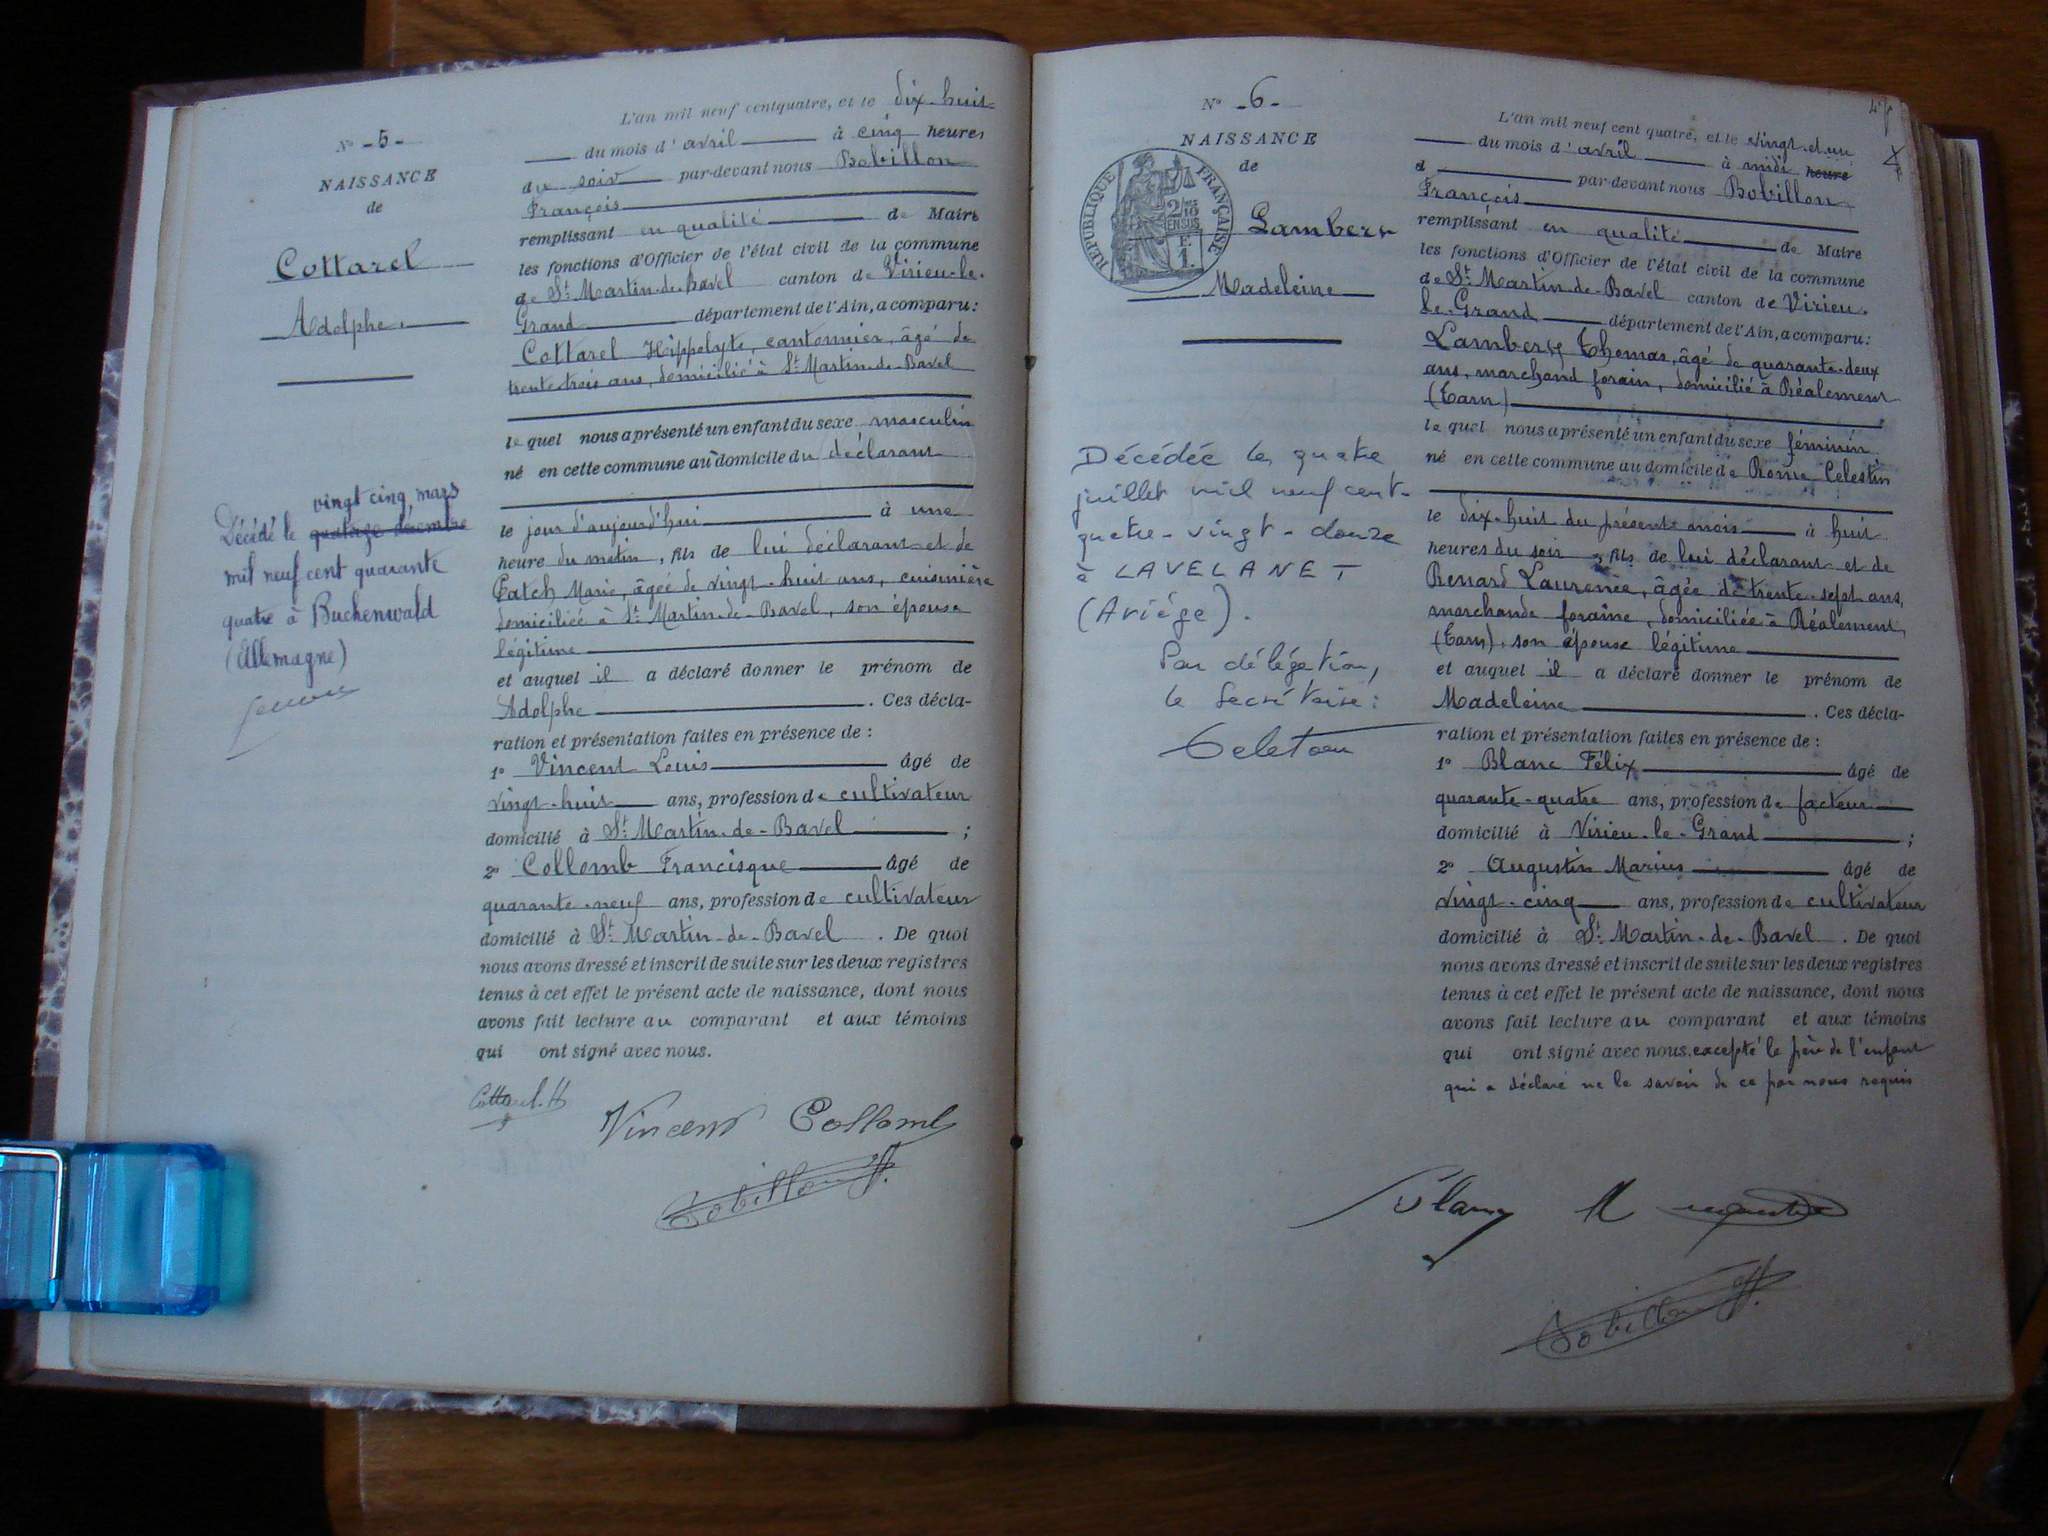 N° - 5 -
NAISSANCE
de
Cottarel
Adolphe.
vingt cinq mars
Décédé le quatorze décembre
mil neuf cent quarante
quatre à Buchenwald
(Allemagne)
L'an mil neuf cent quatre, et le dix-huit
du mois d'avril à cinq heures
du soir par-devant nous Bobillon
François
remplissant en qualité de Maire
les fonctions d'Officier de l'état civil de la commune
de St Martin-de-Bavel canton de Virieu-le-
Grand département de l'Ain, a comparu :
Cottarel Hippolyte, cantonnier, âgé de
trente-trois ans, domicilié à St Martin-de-Bavel
le quel nous a présenté un enfant du sexe masculin
né en cette commune au domicile du déclarant
le jour d'aujourd'hui à une
heure du matin, fils de lui déclarant et de
Catch Marie, âgée de vingt-huit ans, cuisinière
domiciliée à St Martin-de-Bavel, son épouse
légitime
et auquel il a déclaré donner le prénom de
Adolphe . Ces décla-
ration et présentation faites en présence de :
1° Vincent Louis âgé de
vingt-huit ans, profession de cultivateur
domicilié à St Martin-de-Bavel ;
2° Collomb Francisque âgé de
quarante-neuf ans, profession de cultivateur
domicilié à St Martin-de-Bavel . De quoi
nous avons dressé et inscrit de suite sur les deux registres
tenus à cet effet le présent acte de naissance, dont nous
avons fait lecture au comparant et aux témoins
qui ont signé avec nous.
Cottarel. H
Vincent Collomb
Bobillon F.
N° - 6 -
NAISSANCE
de
RÉPUBLIQUE FRANÇAISE
2/10 EN SUS
F.
1.
Lambert
Madeleine
Décédée le quatre
juillet mil neuf cent-
quatre-vingt-douze
à LAVELANET
(Ariège).
Par délégation,
le Secrétaire :
L'an mil neuf cent quatre, et le vingt-et-un
du mois d'avril à midi heure
d par-devant nous Bobillon
François
remplissant en qualité de Maire
les fonctions d'Officier de l'état civil de la commune
de St Martin-de-Bavel canton de Virieu-
le-Grand département de l'Ain, a comparu :
Lambert Thomas, âgé de quarante-deux
ans, marchand forain, domicilié à Réalement
(Tarn)
le quel nous a présenté un enfant du sexe féminin
né en cette commune au domicile de Rome Célestin
le dix-huit du présent mois à huit
heures du soir, fils de lui déclarant et de
Renard Laurencie, âgée de trente-sept ans,
marchande foraine, domiciliée à Réalement
(Tarn), son épouse légitime
et auquel il a déclaré donner le prénom de
Madeleine . Ces décla-
ration et présentation faites en présence de :
1° Blanc Félix âgé de
quarante-quatre ans, profession de facteur
domicilié à Virieu-le-Grand ;
2° Augustin Marius âgé de
vingt-cinq ans, profession de cultivateur
domicilié à St Martin-de-Bavel . De quoi
nous avons dressé et inscrit de suite sur les deux registres
tenus à cet effet le présent acte de naissance, dont nous
avons fait lecture au comparant et aux témoins
qui ont signé avec nous. excepté le père de l'enfant
qui a déclaré ne le savoir de ce par nous requis
Bobillon F.